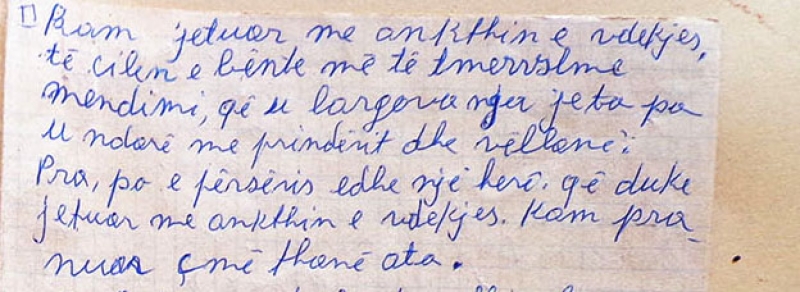 Kam jetuar me ankthin e vdekjes,
të cilen e bënte më të tmerrshme
mendimi, që u largova nga jeta pa
u ndarë me prindërit dhe vëllanë:
Pra, po e përsëris edhe një herë. që duke
jetuar me ankthin e vdekjes. Kam pra_
nuar çmë thanë ata.